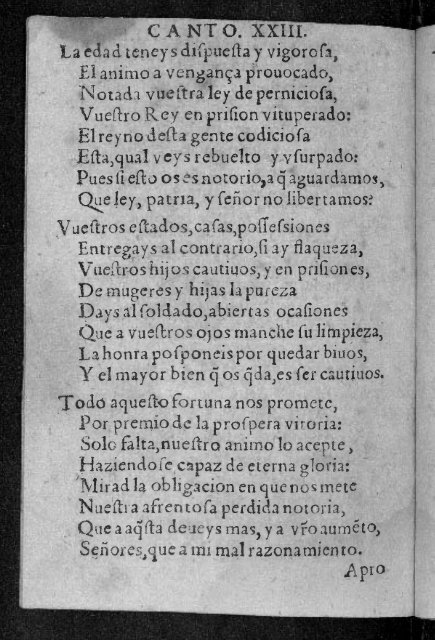 CANTO. XXIII.
La edad teneys dispuesta y vigorosa,
El animo a vengança prouocado,
Notada vuestra ley de perniciosa,
Vuestro Rey en prision vituperado:
El reyno desta gente codiciosa
Esta, qual veys rebuelto y vsurpado:
Pues si esto os es notorio, a q̃ aguardamos,
Que ley, patria, y señor no libertamos?
Vuestros estados, casas, possessiones
Entregays al contrario, si ay flaqueza,
Vuestros hijos cautiuos, y en prisiones,
De mugeres y hijas la pureza
Days al soldado, abiertas ocasiones
Que a vuestros ojos manche su limpieza,
La honra posponeis por quedar biuos,
Y el mayor bien q̃ os q̃da, es ser cautiuos.
Todo aquesto fortuna nos promete,
Por premio de la prospera vitoria:
Solo falta, nuestro animo lo acepte,
Haziendose capaz de eterna gloria:
Mirad la obligacion en que nos mete
Nuestra afrentosa perdida notoria,
Que a aq̃sta deueys mas, y a vr̃o aumẽto,
Señores, que a mi mal razonamiento.
Apro